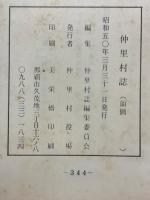 仲里村誌（頒価　　）
昭和五〇年三月三十一日発行
編集　仲里村誌編集委員会
発行者　仲里村役場
印刷　美栄橋印刷
那覇市久茂地三丁目十六ノ八
〇九八八（三三）一八三四
－344－